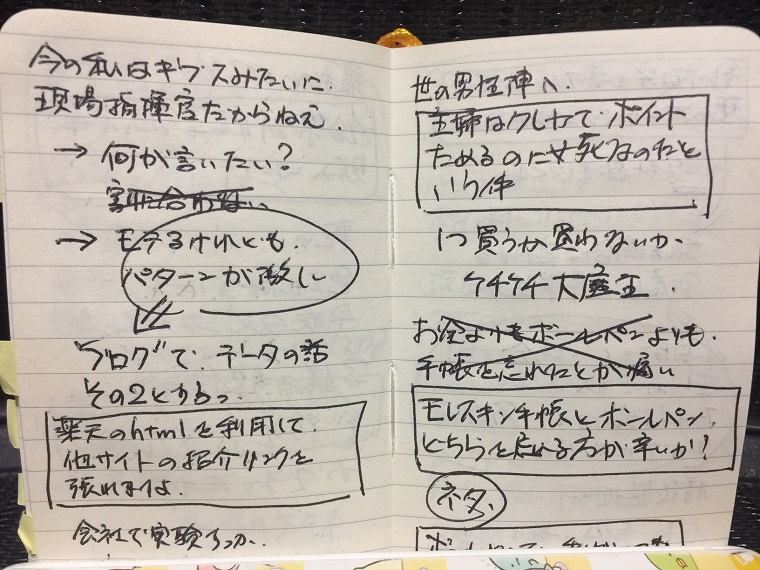 今の私はギブスみたいに
現場指揮官だからねえ.
→ 何が言いたい?
割に合わない
→ モテるけれども.
パターンが激し
"ブログ"で、データの話
その2とかるっ
楽天のhtmlを利用して.
他サイトの紹介リンクを
張れますよ.
会社で実験すっか.
世の男性陣へ.
主婦はクレカで.ポイント
ためるのに必死なのだと
いう件
1つ買うか買わないか.
ケチケチ大魔王.
お金よりもボールペンよりも.
手帳を忘れたことが痛い
モレスキン手帳とボールペン.
どちらを忘れる方が辛いか?
ネタ.